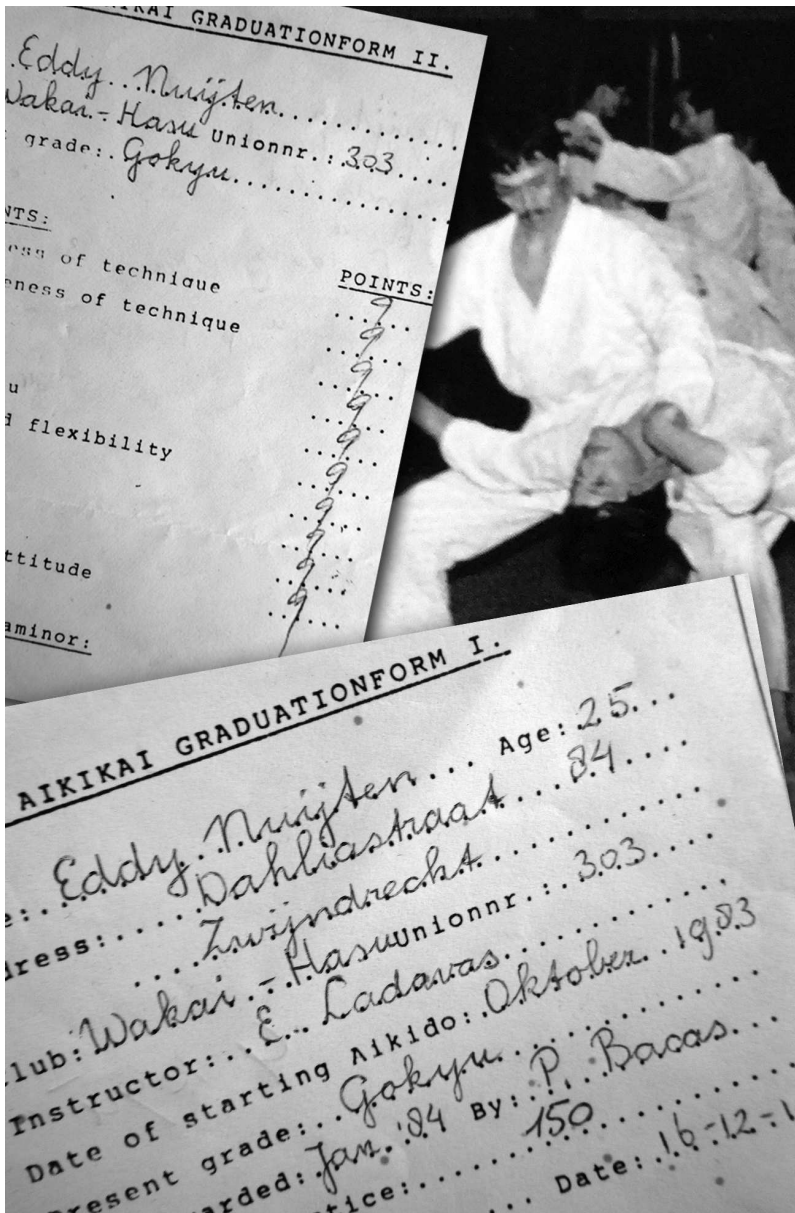 IKAI GRADUATIONFORM II.
Eddy Nuijten
Wakai-Hasu Unionnr.: 303
grade: Gokyu
NTS:
POINTS:
ess of technique 9
eness of technique 9
9
9
u 9
d flexibility 9
9
9
ttitude 9
9
aminor:
AIKIKAI GRADUATIONFORM I.
e: Eddy Nuijten Age: 25
dress: Dahliastraat 84
Zwijndrecht
lub: Wakai-Hasu Unionnr.: 303
Instructor: E. Ladavas
Date of starting Aikido: Oktober 1983
Present grade: Gokyu
arded: Jan. '84 By: P. Bacas
tice: 150
Date: 16-12-1